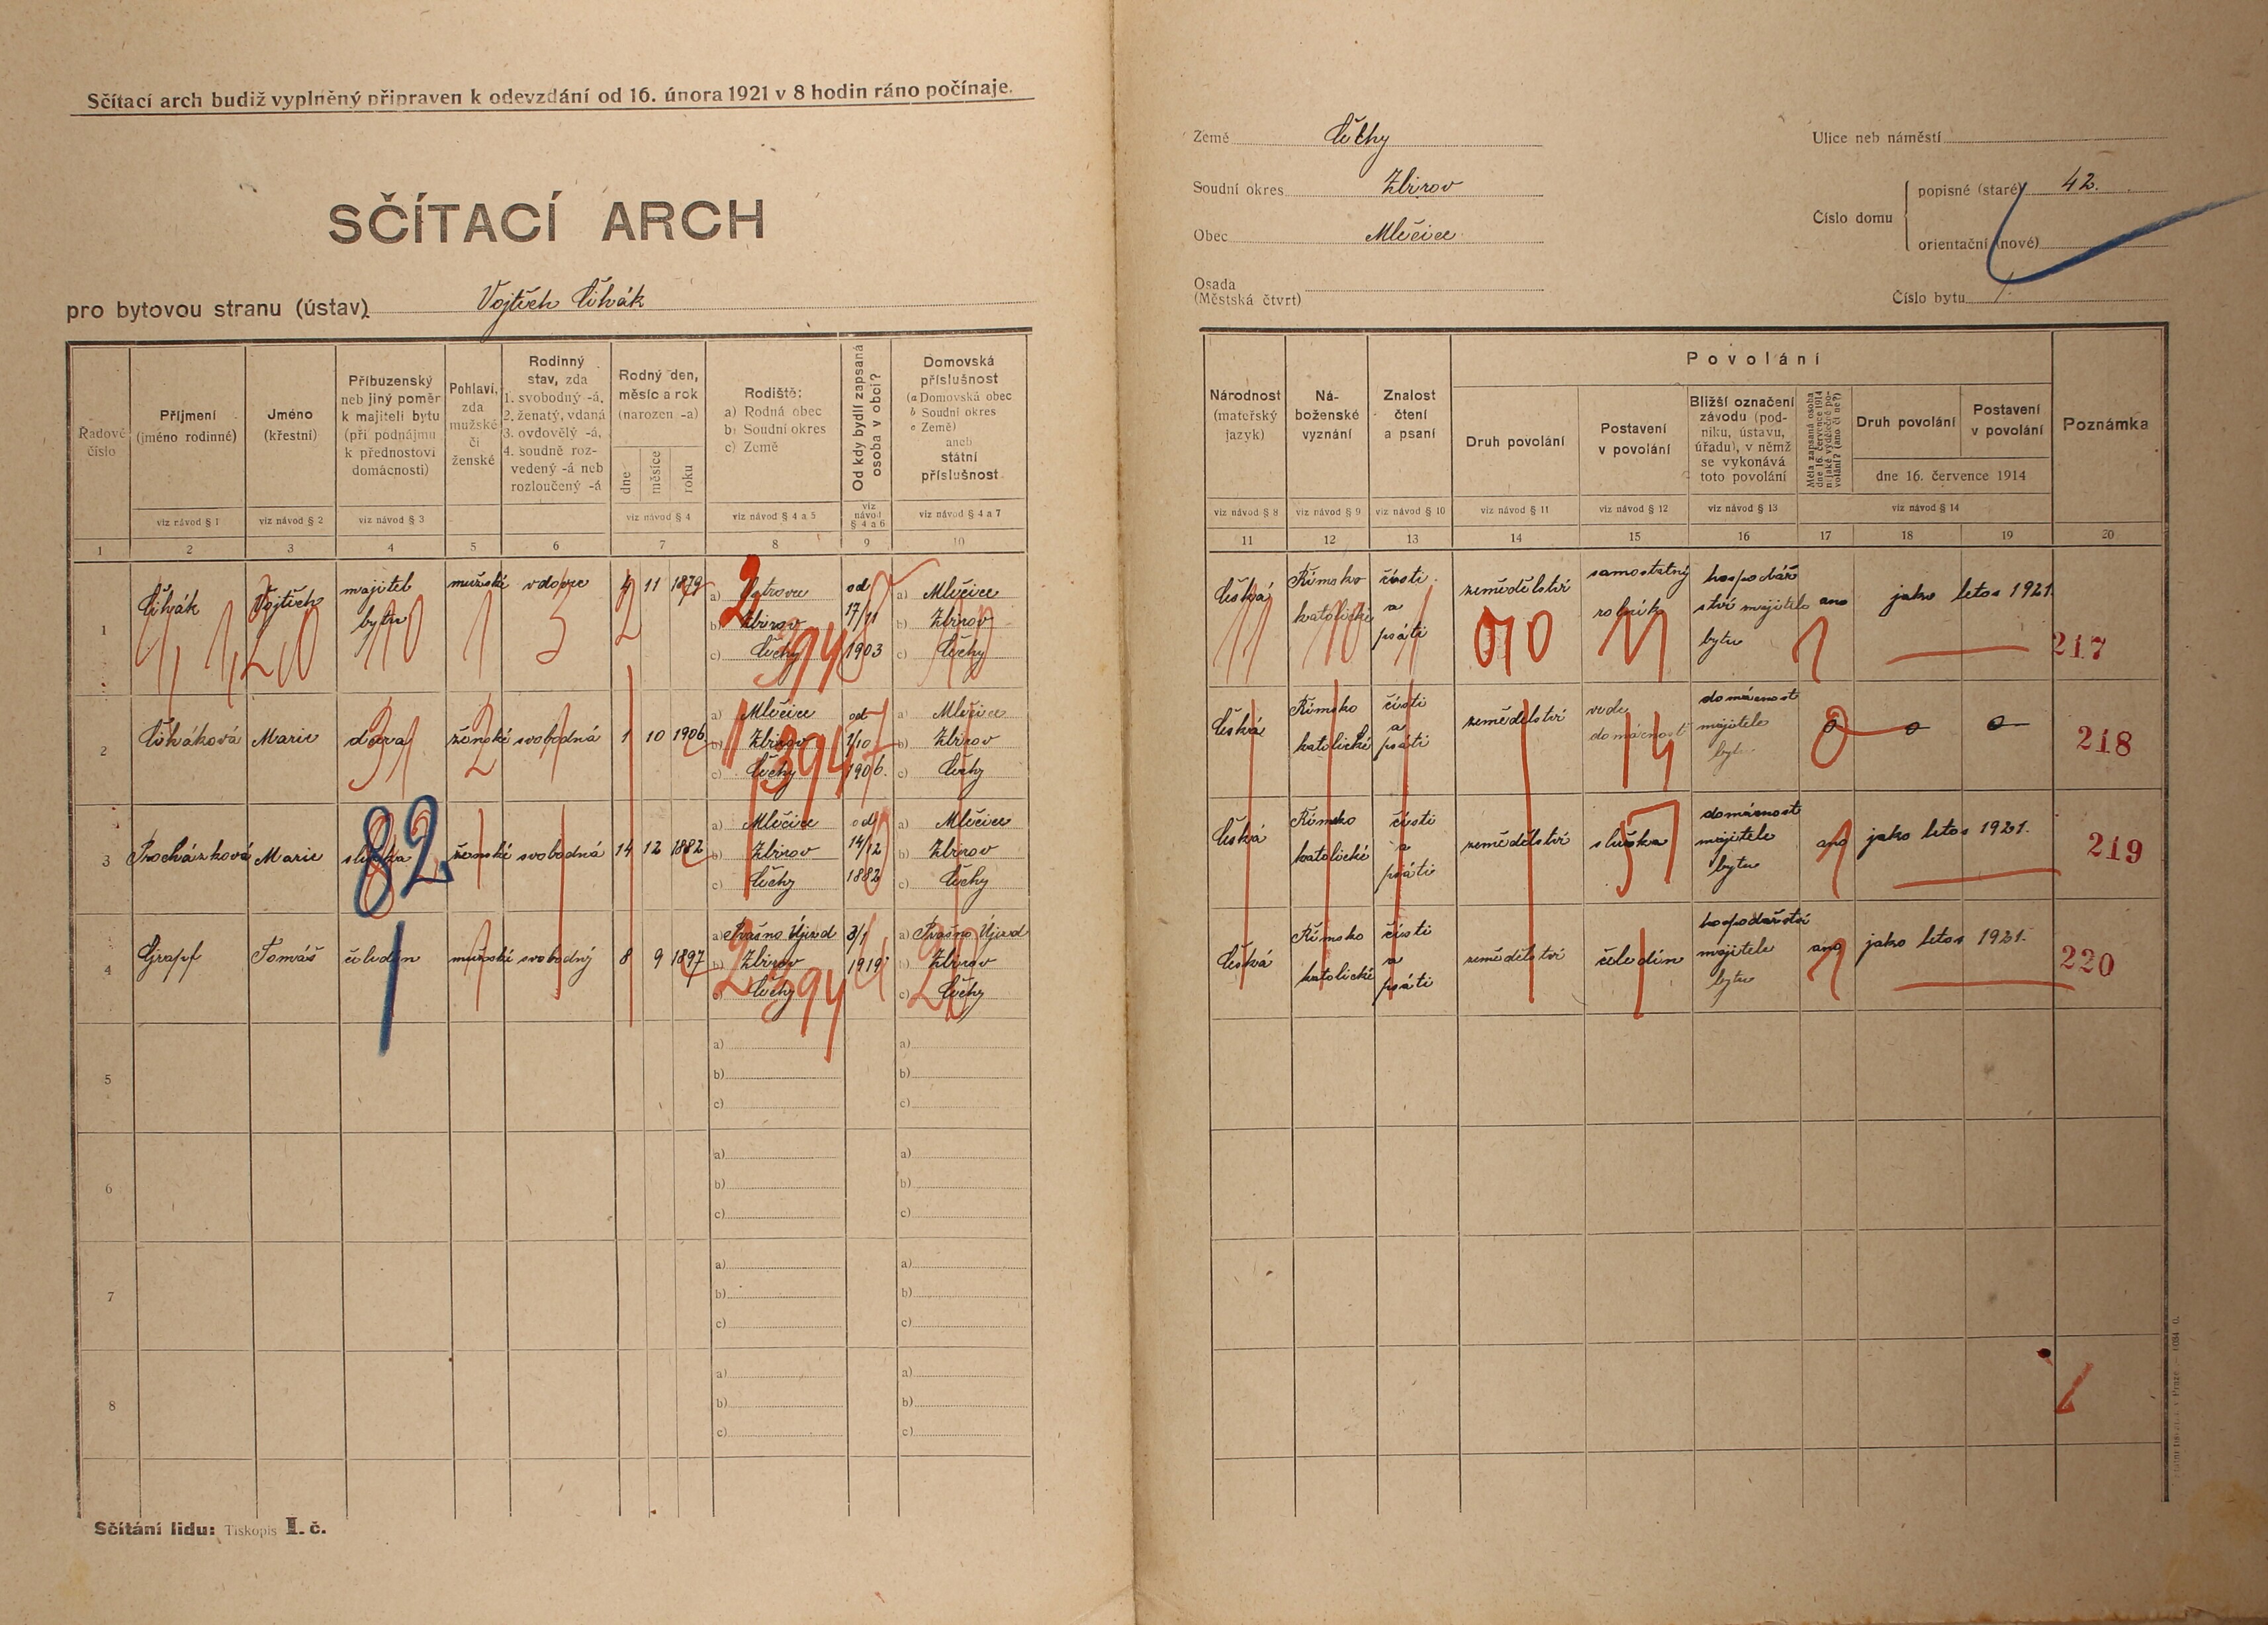 Sčítací arch budiž vyplněný připraven k odevzdání od 16. února 1921 v 8 hodin ráno počínaje.
SČÍTACÍ ARCH
pro bytovou stranu (ústav) Vojtěch Cihák
Země Čechy
Soudní okres Zbirov
Obec Mlečice
Osada
(Městská čtvrt)
Ulice neb náměstí
Číslo domu
popisné (staré) 42.
orientační (nové)
Číslo bytu 1.
Řadové číslo
Příjmení (jméno rodinné)
Jméno (křestní)
Příbuzenský neb jiný poměr k majiteli bytu (při podnájmu k přednostovi domácnosti)
Pohlaví, zda mužské či ženské
Rodinný stav, zda 1. svobodný -á, 2. ženatý, vdaná 3. ovdovělý -á, 4. soudně rozvedený -á neb rozloučený -á
Rodný den, měsíc a rok (narozen -a)
dne měsíce roku
Rodiště: a) Rodná obec b) Soudní okres c) Země
Od kdy bydlí zapsaná osoba v obci?
Domovská příslušnost (a Domovská obec b Soudní okres c Země) aneb státní příslušnost
viz návod § 1 viz návod § 2 viz návod § 3 viz návod § 4 viz návod § 4 a 5 viz návod § 4 a 6 viz návod § 4 a 7
1 2 3 4 5 6 7 8 9 10
Národnost (mateřský jazyk)
Náboženské vyznání
Znalost čtení a psaní
Povolání
Druh povolání
Postavení v povolání
Bližší označení závodu (podniku, ústavu, úřadu), v němž se vykonává toto povolání
Měla zapsaná osoba dne 16. července 1914 nějaké výdělečné povolání? (ano či ne?)
Druh povolání
Postavení v povolání
dne 16. července 1914
Poznámka
viz návod § 8 viz návod § 9 viz návod § 10 viz návod § 11 viz návod § 12 viz návod § 13 viz návod § 14
11 12 13 14 15 16 17 18 19 20
1 Cihák Vojtěch majitel bytu mužské vdovec 4 11 1879 a) Ostrovec b) Zbirov c) Čechy od 17/11 1903 a) Mlečice b) Zbirov c) Čechy
Česká Římsko katolické čísti a psáti zemědělství samostatný rolník hospodářství majitele bytu ano jako letos 1921. 217
2 Ciháková Marie dcera ženské svobodná 1 10 1906 a) Mlečice b) Zbirov c) Čechy od 1/10 1906. a) Mlečice b) Zbirov c) Čechy
Česká Římsko katolické čísti a psáti zemědělství vede domácnost domácnost majitele bytu 0 0 0 218
3 Procházková Marie služka ženské svobodná 14 12 1882 a) Mlečice b) Zbirov c) Čechy od 14/12 1882 a) Mlečice b) Zbirov c) Čechy
Česká Římsko katolické čísti a psáti zemědělství služka domácnost majitele bytu ano jako letos 1921. 219
4 Grapf Tomáš čeledín mužské svobodný 8 9 1897 a) Prašno Újezd b) Zbirov c) Čechy 3/1 1919 a) Prašno Újezd b) Zbirov c) Čechy
Česká Římsko katolické čísti a psáti zemědělství čeledín hospodářství majitele bytu ano jako letos 1921. 220
82
5 a) b) c) a) b) c)
6 a) b) c) a) b) c)
7 a) b) c) a) b) c)
8 a) b) c) a) b) c)
Sčítání lidu: Tiskopis I. č.